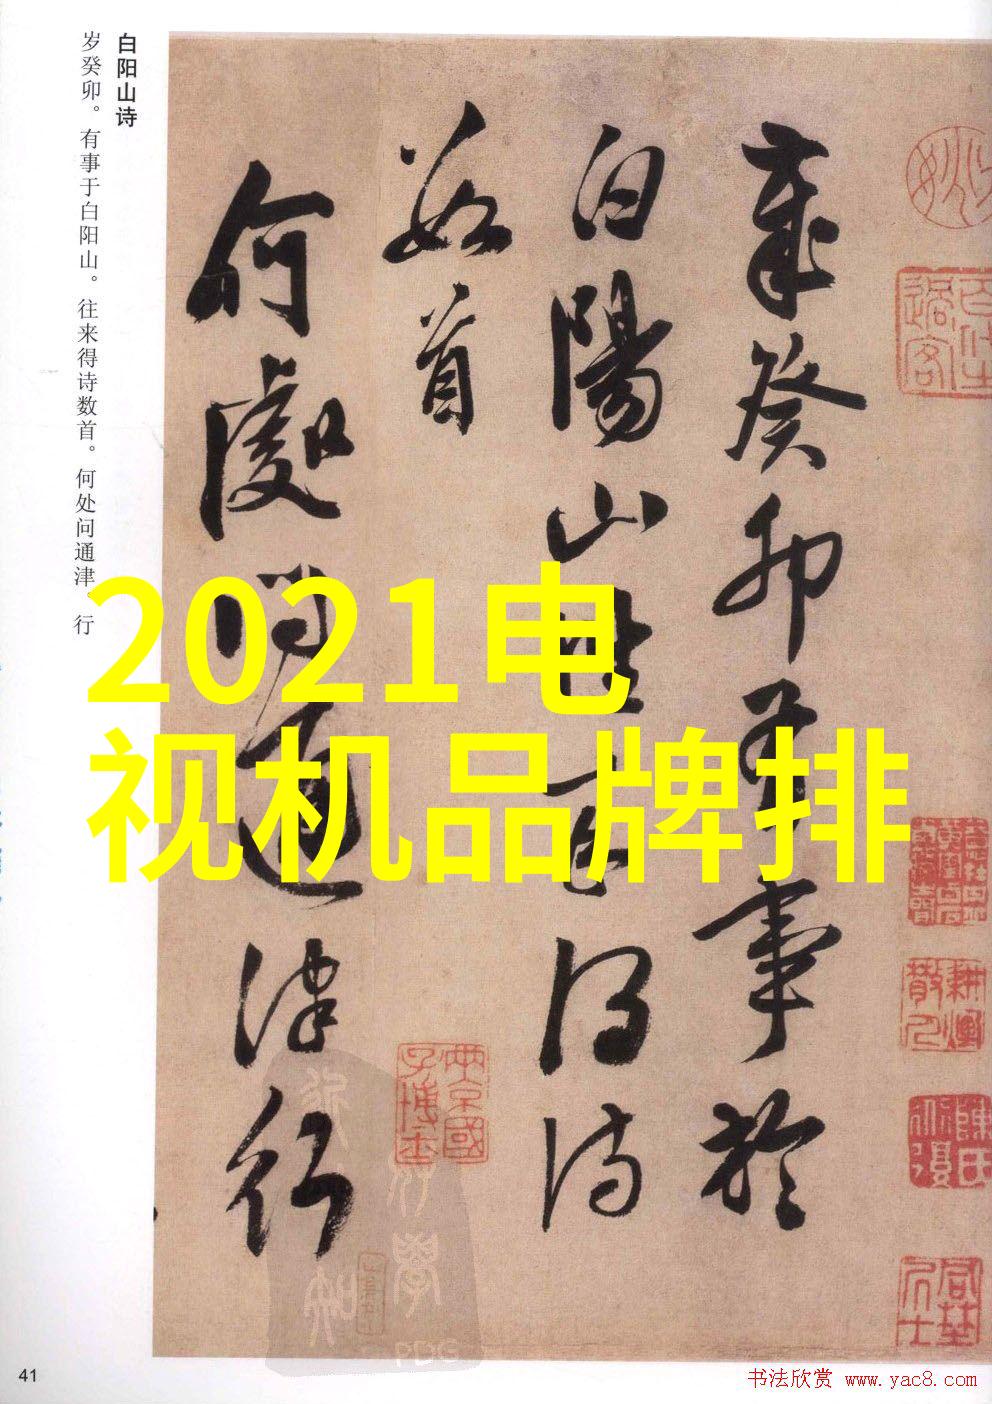 白阳山诗
岁癸卯。有事于白阳山。往来得诗数首。何处问通津。行
歲癸卯有事於
白陽山往来得詩
数首
何處問通津行
2021电
视机品牌排
41
书法欣赏 www.yac8.com